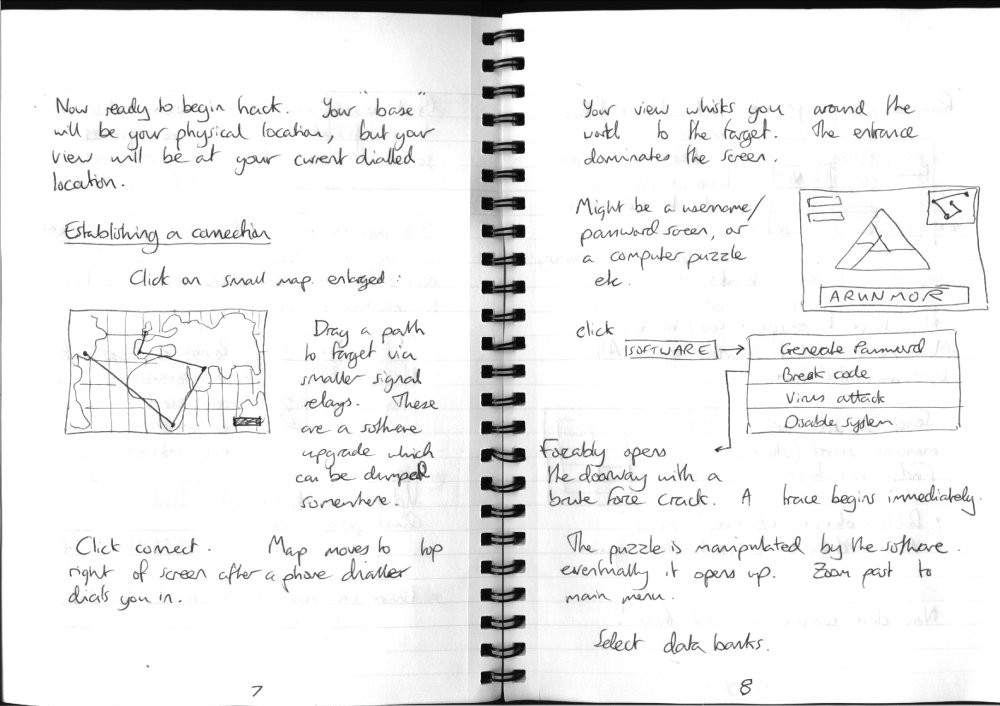 Now ready to begin hack. Your "base"
will be your physical location, but your
view will be at your current dialled
location.
Establishing a connection
Click on small map. enlarged :
Drag a path
to target via
smaller signal
relays. These
are a software
upgrade which
can be dumped
somewhere.
Click connect. Map moves to top
right of screen after a phone dialler
dials you in.
7
Your view whisks you around the
world to the target. The entrance
dominates the screen.
Might be a username/
password screen, or
a computer puzzle
etc.
ARUNMOR
click
SOFTWARE
Generate Password
Break code
Virus attack
Disable system
Forcably opens
the doorway with a
brute force crack. A trace begins immediately.
The puzzle is manipulated by the software.
eventually it opens up. Zoom past to
main menu.
Select data banks.
8